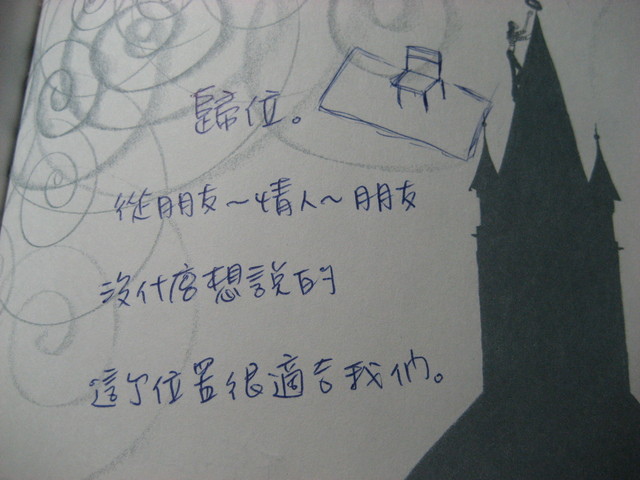 歸位。
從朋友~情人~朋友
沒什麼想說的
這个位置很適合我們。